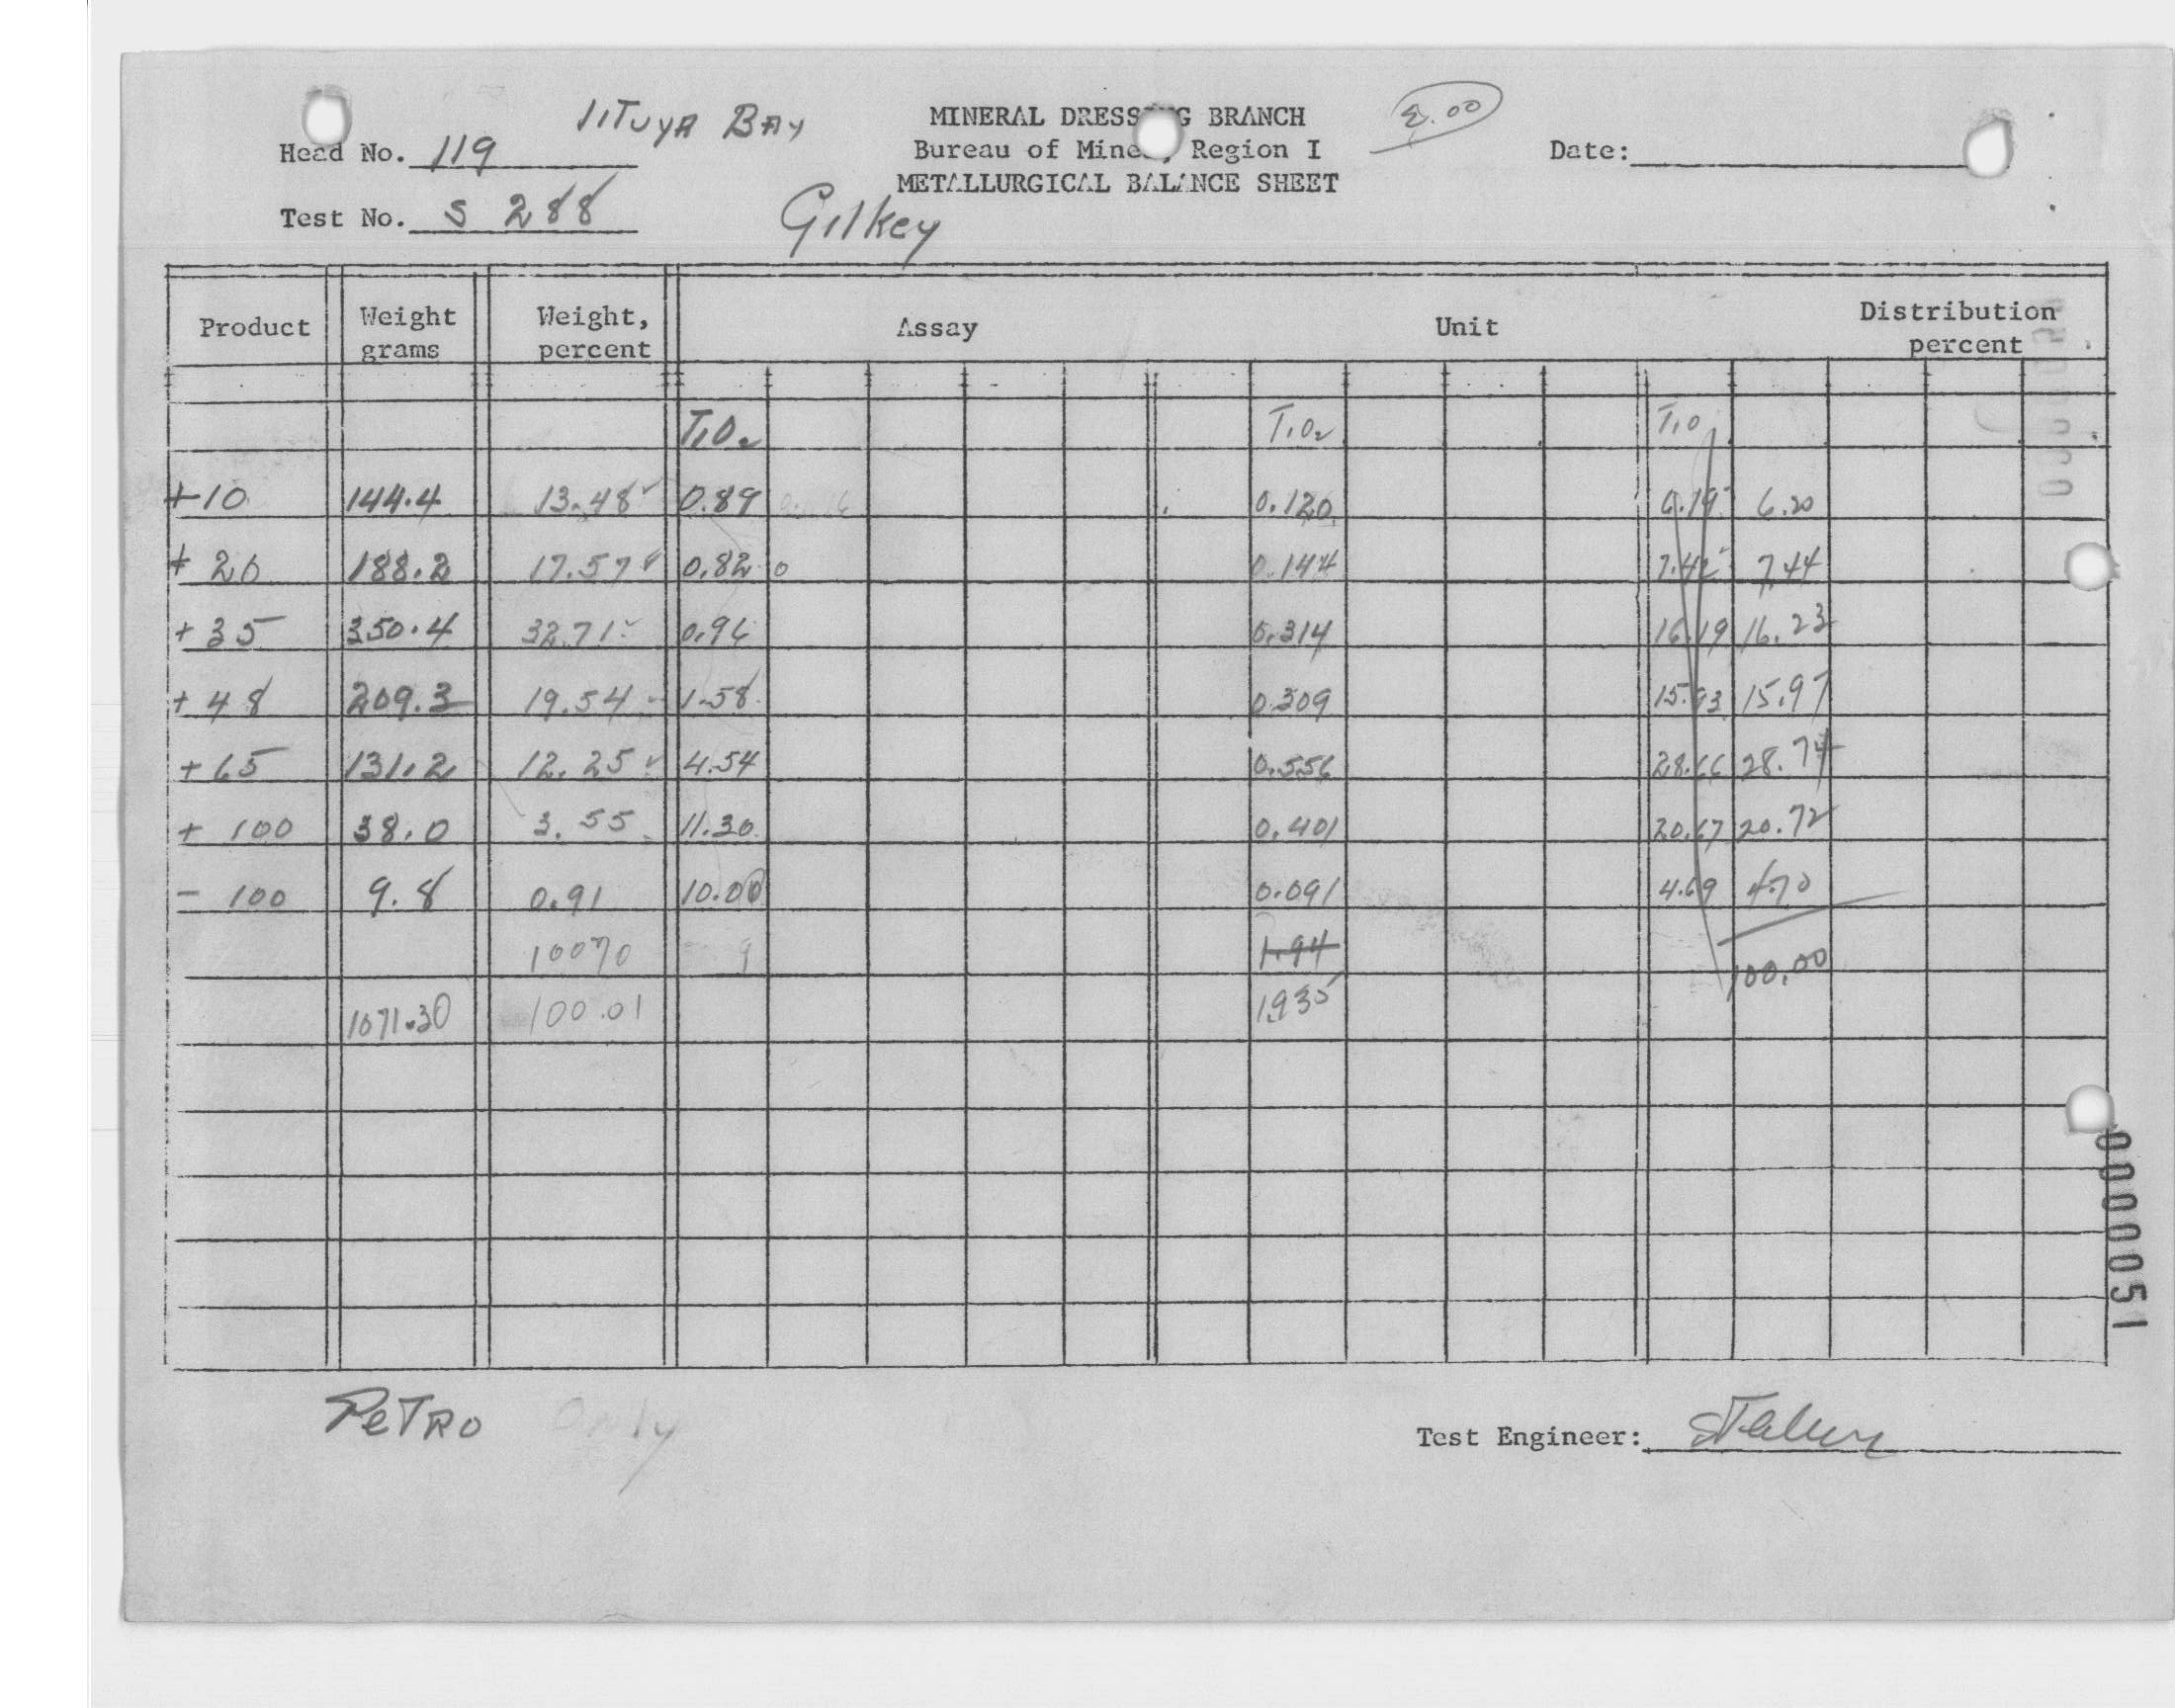 LITUYA BAY
MINERAL DRESSING BRANCH
2.00
Head No. 119
Bureau of Mines, Region I
Date:
METALLURGICAL BALANCE SHEET
Test No. S 288
Gilkey
Product Weight grams Weight, percent Assay Unit Distribution percent
TiO2 TiO2 TiO
+10 144.4 13.48 0.89 0.120 6.19 6.20
+ 20 188.2 17.57 0.82 0.144 7.42 7.44
+ 35 350.4 32.71 0.96 0.314 16.19 16.23
+ 48 209.3 19.54 1.58 0.309 15.93 15.97
+ 65 131.2 12.25 4.54 0.556 28.66 28.74
+ 100 38.0 3.55 11.30 0.401 20.67 20.72
- 100 9.8 0.91 10.00 0.091 4.69 4.70
1.94 100.00
1071.30 100.01 1.935
PETRO only
Test Engineer:
0000051